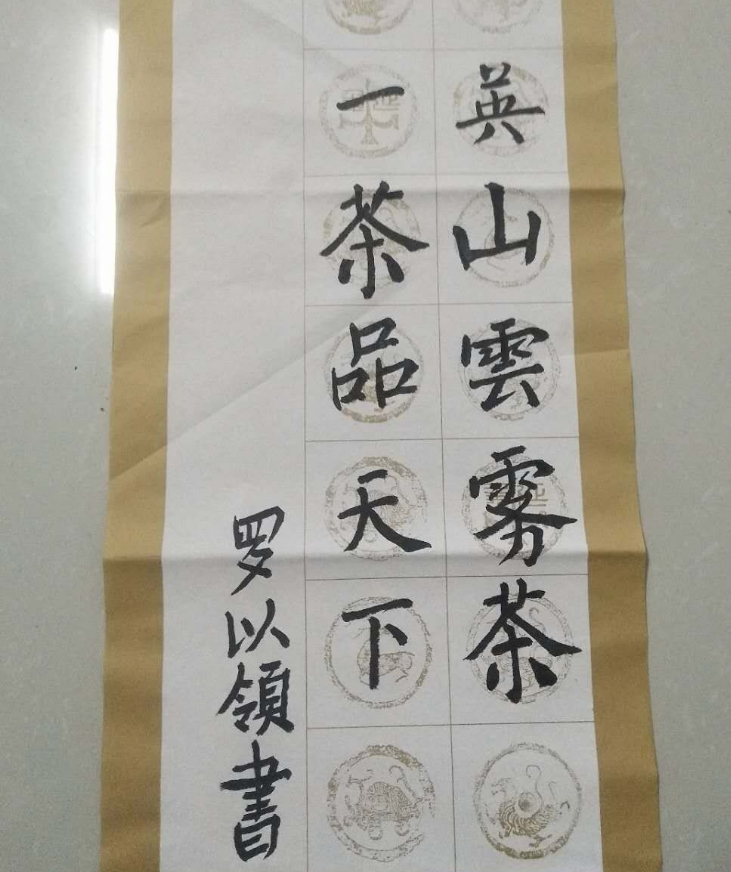 英山雲霧茶
一茶品天下
罗以領書